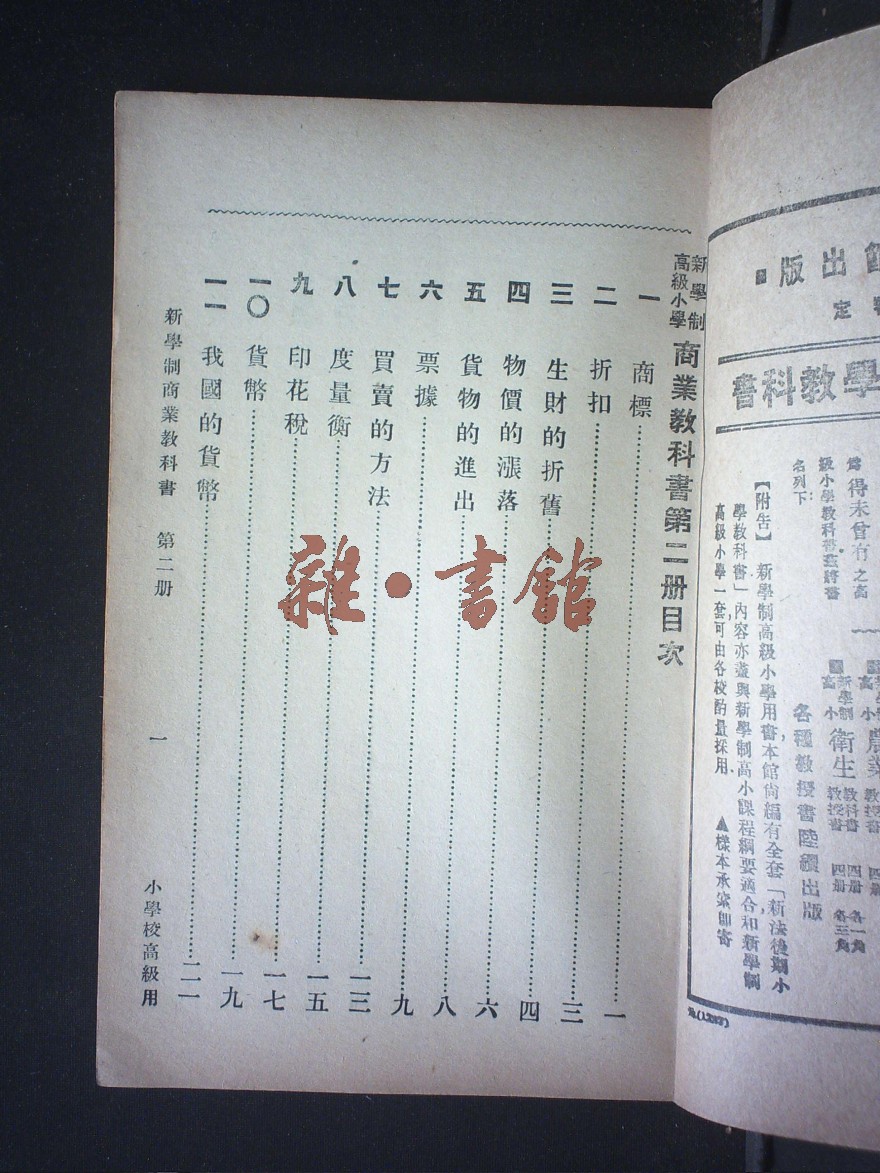 新學制
高級小學
商業教科書第二册目次
一 商標 一
二 折扣 三
三 生財的折舊 四
四 物價的漲落 六
五 貨物的進出 八
六 票據 九
七 買賣的方法 一三
八 度量衡 一五
九 印花稅 一七
一〇 貨幣 一九
一一 我國的貨幣 二一
新學制商業教科書 第二册 一 小學校高級用
雜·書館
館出版
定
學教科書
得未曾有之高
級小學教科書茲將書
名列下
【附告】新學制高級小學用書本館尙編有全套「新法後期小
學教科書」內容亦盡與新學制高小課程綱要適合和新學制
高級小學一套可由各校酌量採用 ▲樣本承索卽寄
新學制
高小
農業
教科書
教授書
四册
新學制
高小
衛生
教科書 四册 各一角
教授書 四册 各三角
各種教授書陸續出版